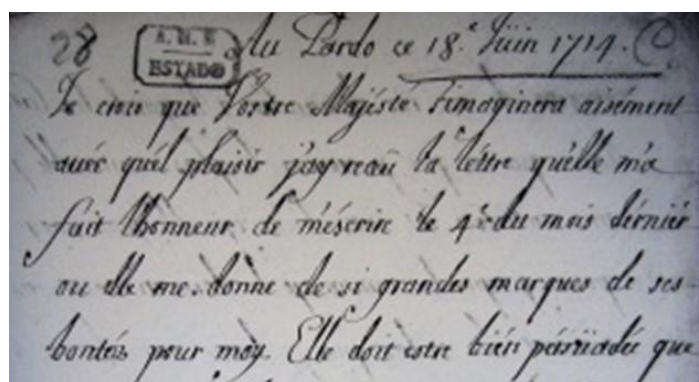 28
A. H. N
ESTADO
Au Pardo ce 18.e Juin 1714.
Je crois que Vostre Majésté s'imaginera aisément
avéc quél plaisir j'ay recëu la léttre qu'élle m'a
fait l'honneur de m'éscrire le 4.e du mois dérniér
ou élle me donne de si grandes marques de ses
bontéz pour moy. Elle doit estre bién pérsüadée que